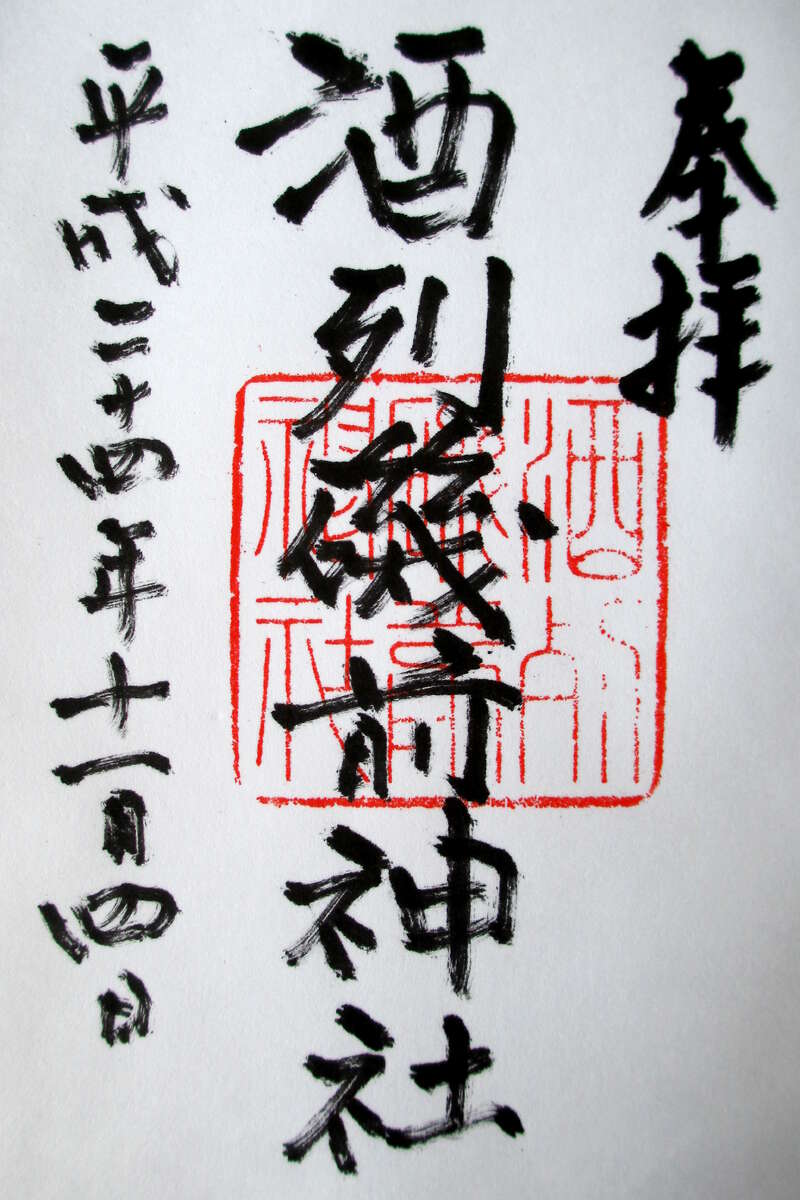 奉拝
酒列磯前神社
平成二十四年十一月四日
酒列
磯前
神社